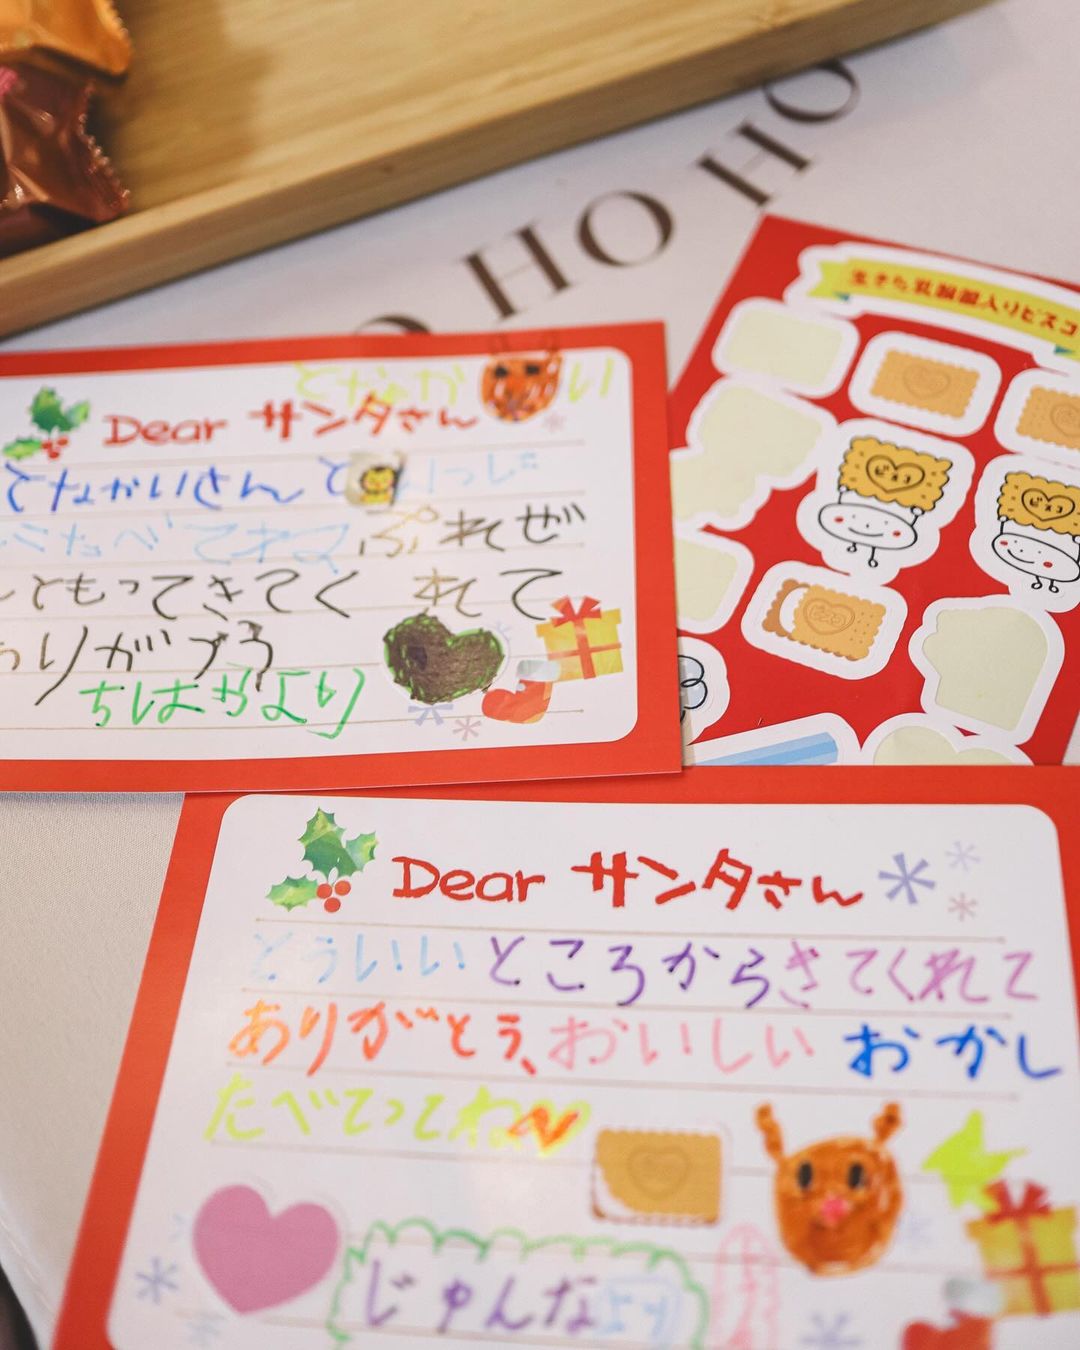 HO HO
生きた乳酸菌入りビスコ
ビスコ
ビスコ
ビスコ
となかい
Dear サンタさん
となかいさんと いっし
たべてねぷれぜ
ともってきてくれて
ありがとう
ちはやより
Dear サンタさん
とういいところからきてくれて
ありがとう、おいしいおかし
たべてってね
じゅんなより